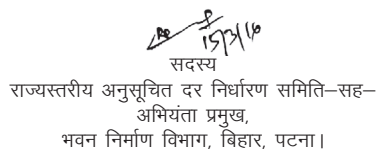 15/3/16
सदस्य
राज्यस्तरीय अनुसूचित दर निर्धारण समिति–सह–
अभियंता प्रमुख,
भवन निर्माण विभाग, बिहार, पटना।